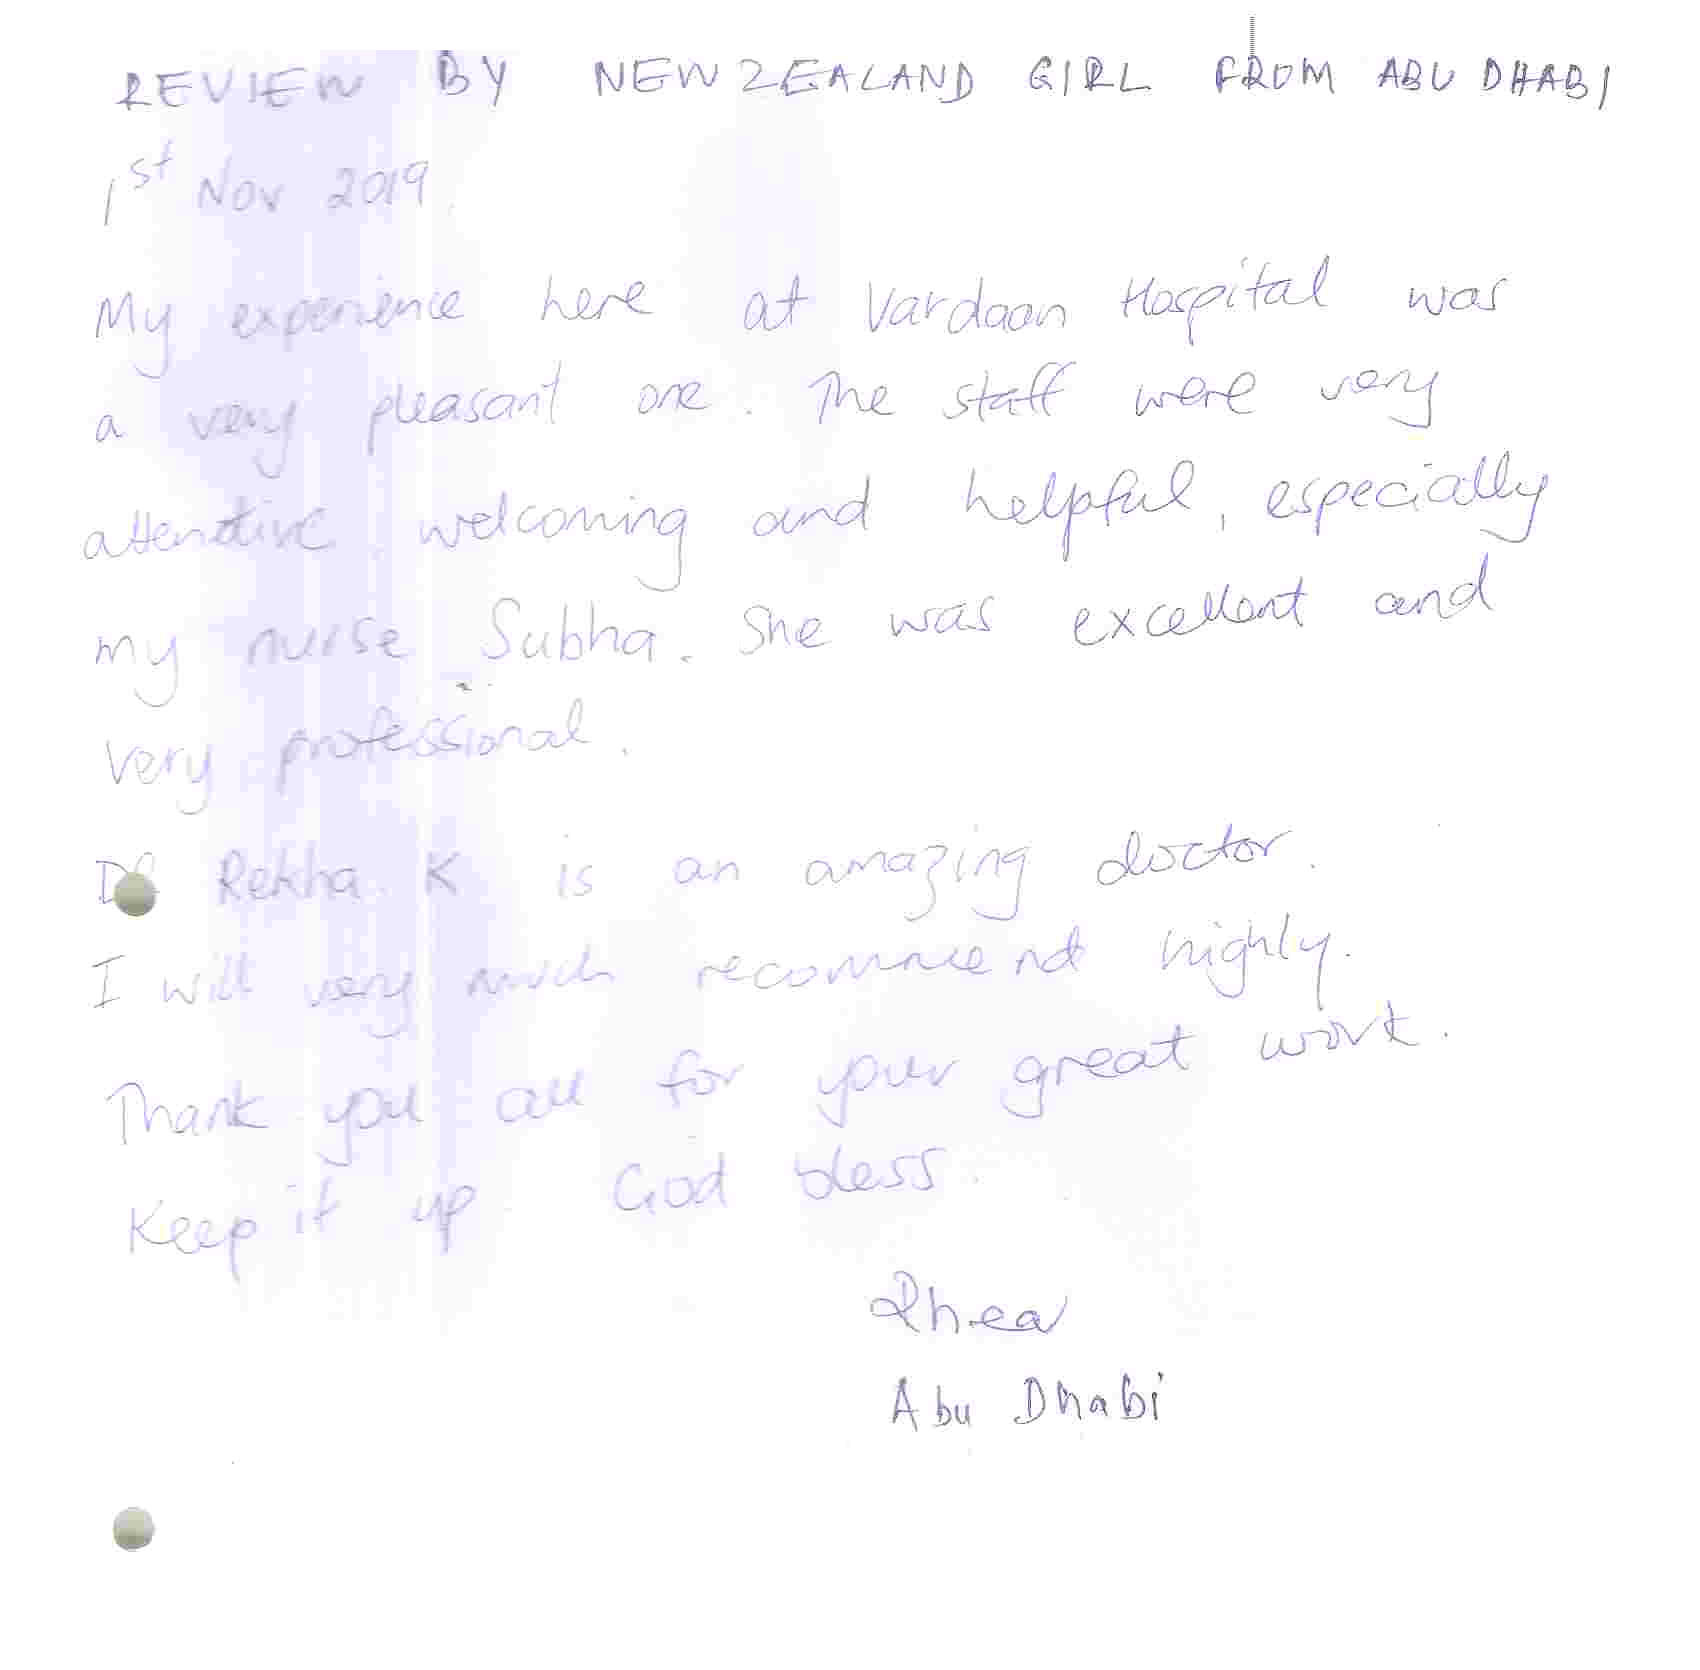 REVIEW BY NEW ZEALAND GIRL FROM ABU DHABI
1st Nov 2019.
My experience here at Vardaan Hospital was
a very pleasant one. The staff were very
attentive, welcoming and helpful, especially
my nurse Subha. She was excellent and
very professional.
Dr Rekha K is an amazing doctor.
I will very much recommend highly.
Thank you all for your great work.
Keep it up. God bless.
Rhea
Abu Dhabi